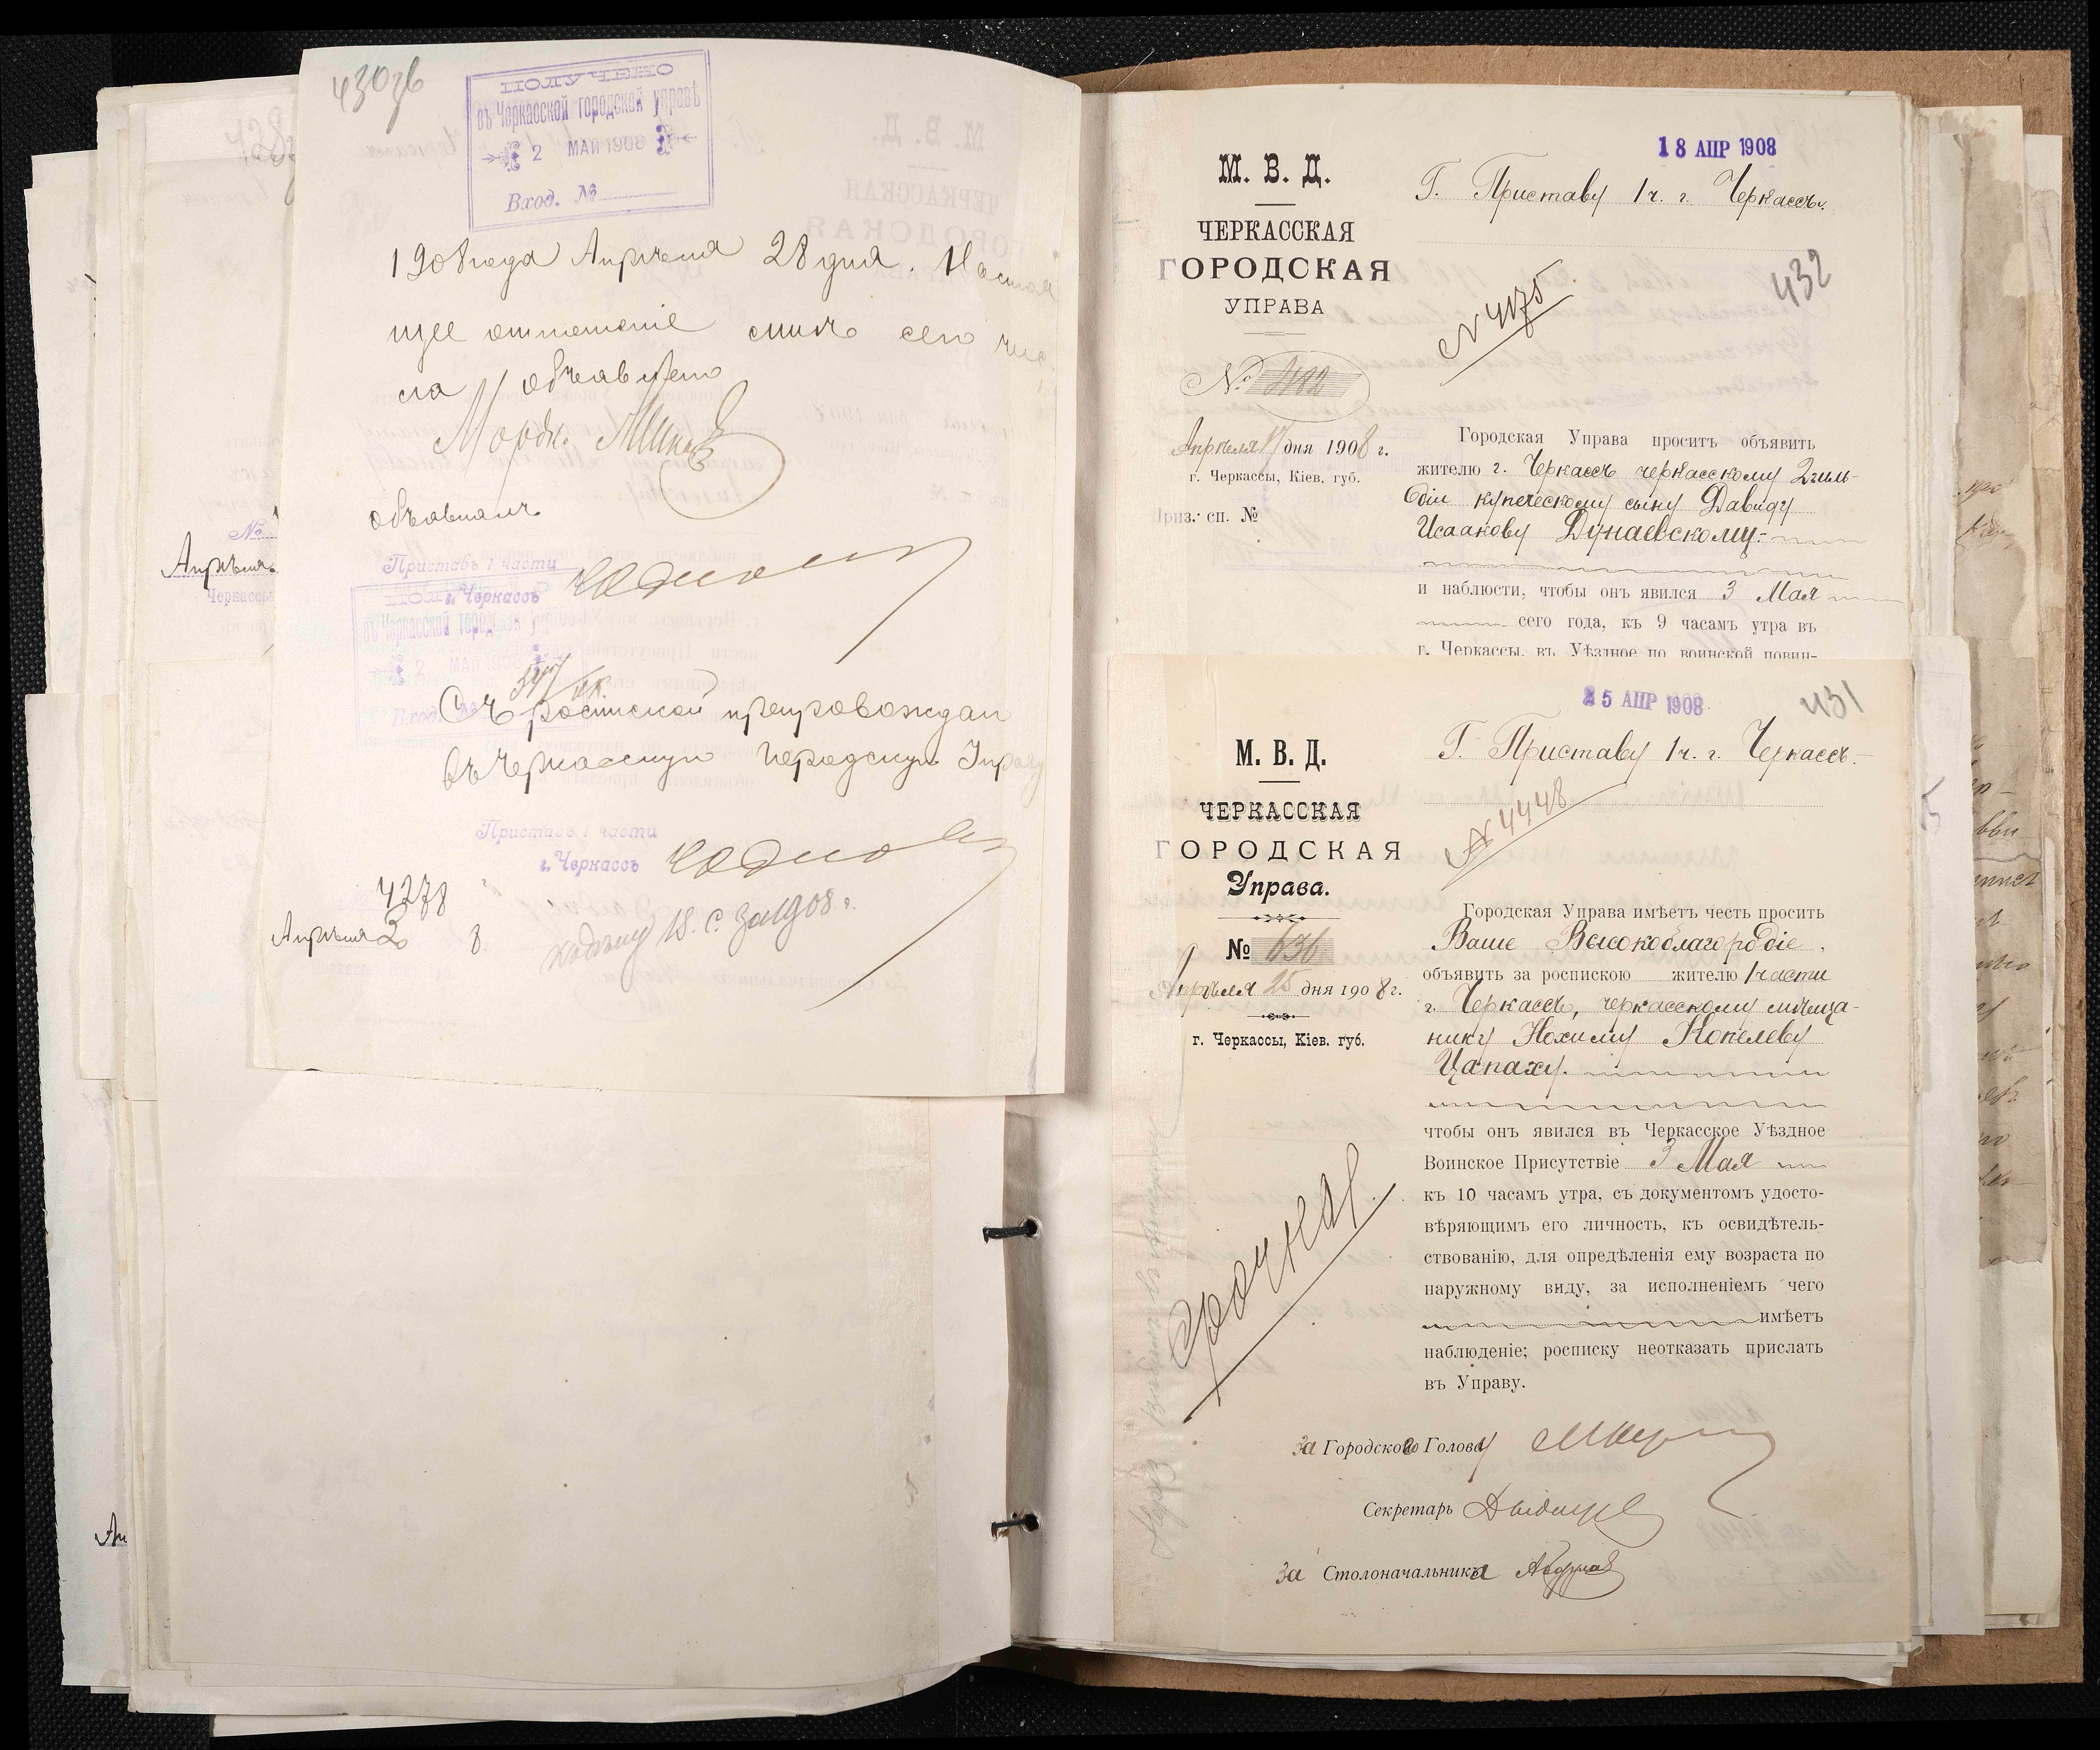 430зв
ПОЛУЧЕНО
въ Черкасской городской управѣ
2 МАЙ 1908
Вход. №
1908 года Апрѣля 28 дня. Настоя
щее отношеніе мнѣ сего чис
ла объявлено
Мордк.
объявилъ
Приставъ 1 части
г. Черкассъ
ПОЛУЧЕНО
въ Черкасской городской управѣ
2 МАЙ 1908
Вход. №
Съ роспиской препровождаю
въ Черкасскую Городскую Управу
Приставъ 1 части
г. Черкассъ
4278
Апрѣля 8
№
Апрѣля
Черкассы
18 АПР 1908
М. В. Д.
ЧЕРКАССКАЯ
ГОРОДСКАЯ
УПРАВА
№ 482
Апрѣля 17 дня 1908 г.
г. Черкассы, Кіев. губ.
Приз. сп. №
Г. Приставу 1 ч. г. Черкассъ.
432
№ 4175
Городская Управа проситъ объявить
жителю г. Черкассъ черкасскому 2 гиль-
діи купеческому сыну Давиду
Исаакову Дунаевскому.
и наблюсти, чтобы онъ явился 3 Мая
сего года, къ 9 часамъ утра въ
г. Черкассы, въ Уѣздное по воинской повин-
25 АПР 1908
431
М. В. Д.
ЧЕРКАССКАЯ
ГОРОДСКАЯ
Управа.
№ 636
Апрѣля 25 дня 1908 г.
г. Черкассы, Кіев. губ.
Срочная
Г. Приставу 1 ч. г. Черкассъ.
№ 4448
Городская Управа имѣетъ честь просить
Ваше Высокоблагородіе,
объявить за роспискою жителю 1 части
г. Черкассъ, черкасскому мѣща-
нину Нохиму Копелеву
Цапаху.
чтобы онъ явился въ Черкасское Уѣздное
Воинское Присутствіе 3 Мая
къ 10 часамъ утра, съ документомъ удосто-
вѣряющимъ его личность, къ освидѣтель-
ствованію, для опредѣленія ему возраста по
наружному виду, за исполненіемъ чего
имѣетъ
наблюденіе; росписку неотказать прислать
въ Управу.
За Городского Голову
Секретарь
За Столоначальника